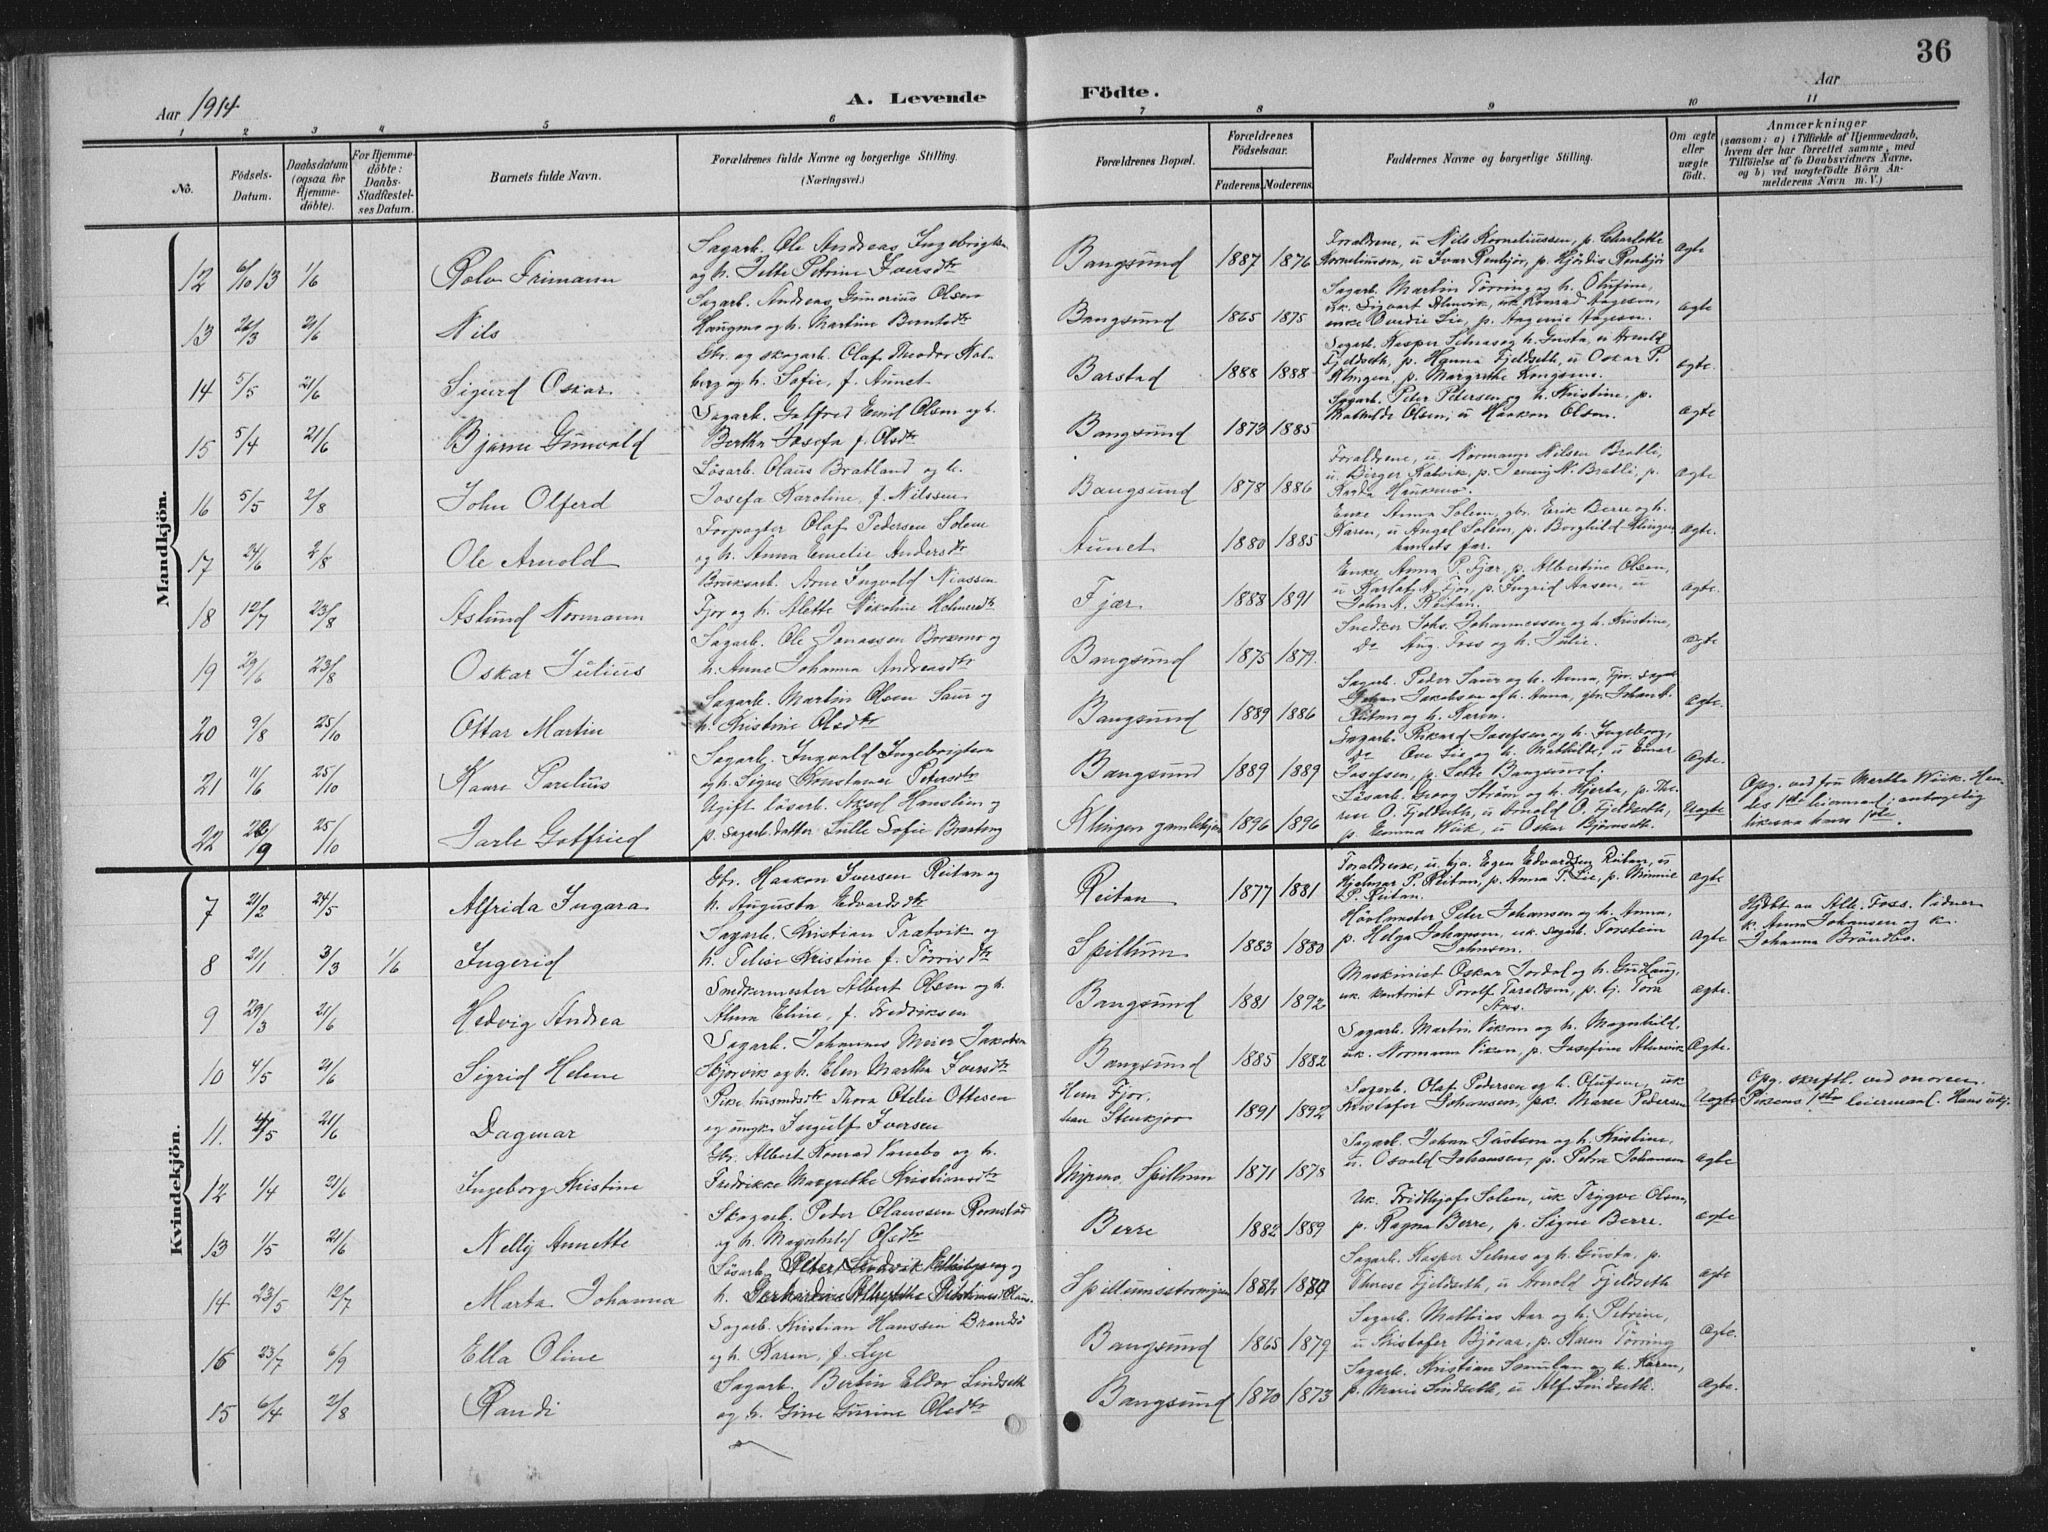 36
Aar 1914
A. Levende Födte.
Aar
1 2 3 4 5 6 7 8 9 10 11
No.
Födsels-Datum.
Daabsdatum (ogsaa for Hjemmedöbte).
For Hjemmedöbte: Daabs-Stadfæstelses Datum.
Barnets fulde Navn.
Forældrenes fulde Navne og borgerlige Stilling. (Næringsvei.)
Forældrenes Bopæl.
Forældrenes Födselsaar.
Faderens. Moderens.
Faddernes Navne og borgerlige Stilling.
Om ægte eller uægte födt.
Anmærkninger
(saasom: a) i Tilfælde af Hjemmedaab, hvem der har forrettet samme, med Tilföielse af to Daabsvidners Navne. og b) ved uægtefödte Börn Anmelderens Navn m. V.)
Mandkjön.
12 6/10 13 1/6 Rolv Frimann
Sagarb. Ole Andreas Ingebrigtsen
og h. Jette Petrine Iversdtr
Bangsund 1887 1876
Forældrene, u Nils Korneliussen, p. Charlotte
Korneliussen, u Ivar Renbjör, p. Hjördis Renbjör
Ægte
13 26/3 21/6 Nils
Sagarb. Andreas Gunerius Olsen
Haugmo og h. Martine Berntsdtr
Bangsund 1865 1875
Sagarb. Martin Törring og h. Olufine,
uk. Sigvart Almvik, uk. Konrad Aagesen,
enke Ovedie Lie, p. Aagenie Aagesen.
Ægte
14 5/5 21/6 Sigurd Oskar
Gbr. og skogarb. Olaf Theodor Kol-
berg og h. Sofie, f. Aunet
Barstad 1888 1888
Sagarb. Kasper Selnas og h. Gusta, u Arnold
Fjeldseth, p. Hanna Fjeldseth, u Oskar P.
Klingen, p. Margrethe Kongsmo.
Ægte.
15 5/4 21/6 Bjarne Gunvald
Sagarb. Gotfred Emil Olsen og h.
Bertha Josefa f. Olsdtr
Bangsund 1873 1885
Sagarb. Peter Petersen og h. Kristine, p.
Mathilde Olsen, u Haakon Olsen.
Ægte
16 5/5 2/8 John Olferd
Lösarb. Olaus Bratland og h.
Josefa Karoline, f. Nilssen
Bangsund 1878 1886
Forældrene, u. Normann Nilsen Bratli,
u. Birger Kalvik, p. Jenny N. Bratli, p.
Ragda Haukmo.
Ægte
17 24/6 2/8 Ole Arnold
Forpagter Olaf Pedersen Solem
og h. Anna Emelie Andersdtr
Aunet 1880 1885
Enke Anna Solem, gbr. Erik Berre og h.
Karen, u Angel Solem, p. Borghild Klingen
barnets far.
Ægte.
18 12/7 23/8 Aslund Normann
Bruksarb. Arne Ingvald Niassen
Fjær og h. Alette Nikoline Helmersdtr
Fjær 1888 1891
Enke Anna P. Fjær, p. Albertine Olsen,
u Karlot A. Fjær, p. Ingrid Aasen, u
John A. Reitan.
Ægte.
19 29/6 23/8 Oskar Julius
Sagarb. Ole Jonassen Borkmo og
h. Anne Johanna Andreasdtr
Bangsund 1875 1879.
Snedker Johs. Johannessen og h. Kristine,
Do Aug. Foss og h. Julie.
Ægte
20 9/8 25/10 Ottar Martin
Sagarb. Martin Olsen Saur og
h. Kristine Olsdtr
Bangsund 1889 1886
Sagarb. Peder Saur og h. Anna, Fjær. Sagarb
Johan Jakobsen og h. Anna, gbr. Johan A.
Reitan og h. Karen.
Ægte.
21 11/6 25/10 Kaare Parelius
Sagarb. Ingvald Ingebrigtsen
og h. Signe Konstanse Petersdtr
Bangsund 1889 1889
Sagarb. Rikard Josefsen og h. Ingeborg,
Do Ove Lie og h. Mathilde, u Einar
Josefsen, p. Lotte Bangsund.
Ægte.
22 22/9 25/10 Jarle Gotfried
Ugift lösarb. Aksel Hanslien og
p. sagarb.datter Lulle Sofie Brasteng
Klingen gamlehjem 1896 1896
Lösarb. Georg Ström og h. Hjerta, p. The-
rese O. Fjeldseth, u Arnold O. Fjeldseth,
p. Emma Wiik, u Oskar Björnseth.
Uægte
Opg. ved fru Martha Wiik. Hen-
des 1ste leiermaal; antagelig
likesaa hans 1ste.
Kvindekjön.
7 21/2 24/5 Alfrida Ingara
Gbr. Haakon Iversen Reitan og
h. Augusta Edvardsdtr
Reitan 1877 1881
Forældrene, u. tja. Egen Edvardsen Reitan, u
Hjelmar P. Reitan, p. Anna P. Lie, p. Minnie
P. Reitan.
Ægte
8 21/1 3/3 1/6 Ingerid
Sagarb. Kristian Trætvik og
h. Telise Kristine f. Törrisdtr
Spillum 1883 1880
Hövlmester Peter Johansen og h. Anna,
p. Helga Johansen, uk. sagarb. Torstein
Johnsen.
Ægte
Hjdbt av Alb. Foss. Vidner
k. Anna Johansen og k.
Johanna Bröndbo.
9 29/3 21/6 Hedvig Andrea
Snedkermester Albert Olsen og h.
Alma Eline, f. Fredriksen
Bangsund 1881 1892
Maskinist Oskar Jordal og h. Gudlaug,
uk. kontorist Torolf Taraldsen, p. tj. Tora
Aas.
Ægte.
10 4/5 21/6 Sigrid Helene
Sagarb. Johannes Meier Jakobsen
Skjörvik og h. Elen Martha Iversdtr
Bangsund 1885 1882
Sagarb. Martin Viken og h. Magnhild,
uk. Normann Viken, p. Josefine Almvik
Ægte.
11. 4/5 21/6 Dagmar
Pike husmdsdtr Thora Otelie Ottesen
og ungk. Ingulf Iversen
Hun Fjær,
han Stenkjær 1891 1892
Sagarb. Olaf Pedersen og h. Olufine, uk
Kristofer Johansen, pk. Marie Pedersen
Uægte
Opg. skriftl. ved moren.
Pikens 1ste leiermaal. Hans ukj.
12 1/4 21/6 Ingeborg Kristine
Gbr. Albert Konrad Vanebo og h.
Fredrikke Margrethe Kristiansdtr
Myrmo, Spillum 1871 1878
Sagarb. Johan Justsen og h. Kristine,
u. Osvald Johansen, p. Petra Johansen
Ægte
13 1/5 21/6 Nelly Annette
Skogarb. Peder Olaussen Romstad
og h. Magnhild Olsdtr
Berre 1882 1889
Uk. Fridthjof Solem, uk Trygve Olsen,
p. Ragna Berre, p. Signe Berre.
Ægte
14 23/5 12/7 Marta Johanna
Lösarb. Peter Ludvik
h.
Spillumsstranden
Sagarb. Kasper Selnes og h. Gusta, p.
Therese Fjeldseth, u Arnold Fjeldseth
Ægte
16 23/7 6/9 Ella Oline
Sagarb. Kristian Hanssen Brandsö
og h. Karen, f. Leje
Bangsund 1865 1879
Sagarb. Mathias Aar og h. Petrine,
u Kristofer Björaa, p. Karen Törring
Ægte.
15 6/4 2/8 Randi
Sagarb. Bertin Eldor Lindseth
og h. Gine Gurine Olsdtr
Bangsund 1870 1873
Sagarb. Kristian Samulan og h. Karen,
p. Marie Lindseth, u Alf Lindseth.
Ægte.